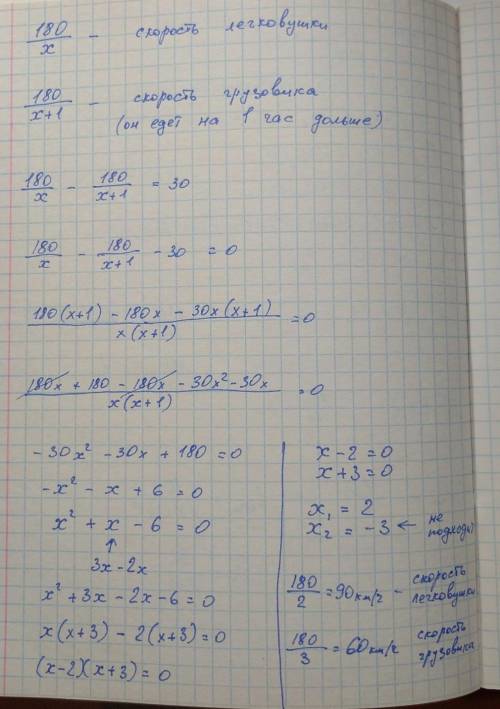 180/x - скорость легковушки
180/x+1 - скорость грузовика
(он едет на 1 час дольше)
180/x - 180/x+1 = 30
180/x - 180/x+1 - 30 = 0
180(x+1) - 180x - 30x(x+1)/x(x+1) = 0
180x + 180 - 180x - 30x² - 30x/x(x+1) = 0
-30x² - 30x + 180 = 0
-x² - x + 6 = 0
x² + x - 6 = 0
↑
3x - 2x
x² + 3x - 2x - 6 = 0
x(x+3) - 2(x+3) = 0
(x-2)(x+3) = 0
x - 2 = 0
x + 3 = 0
x₁ = 2
x₂ = -3 ← не подходит
180/2 = 90 км/ч - скорость легковушки
180/3 = 60 км/ч скорость грузовика